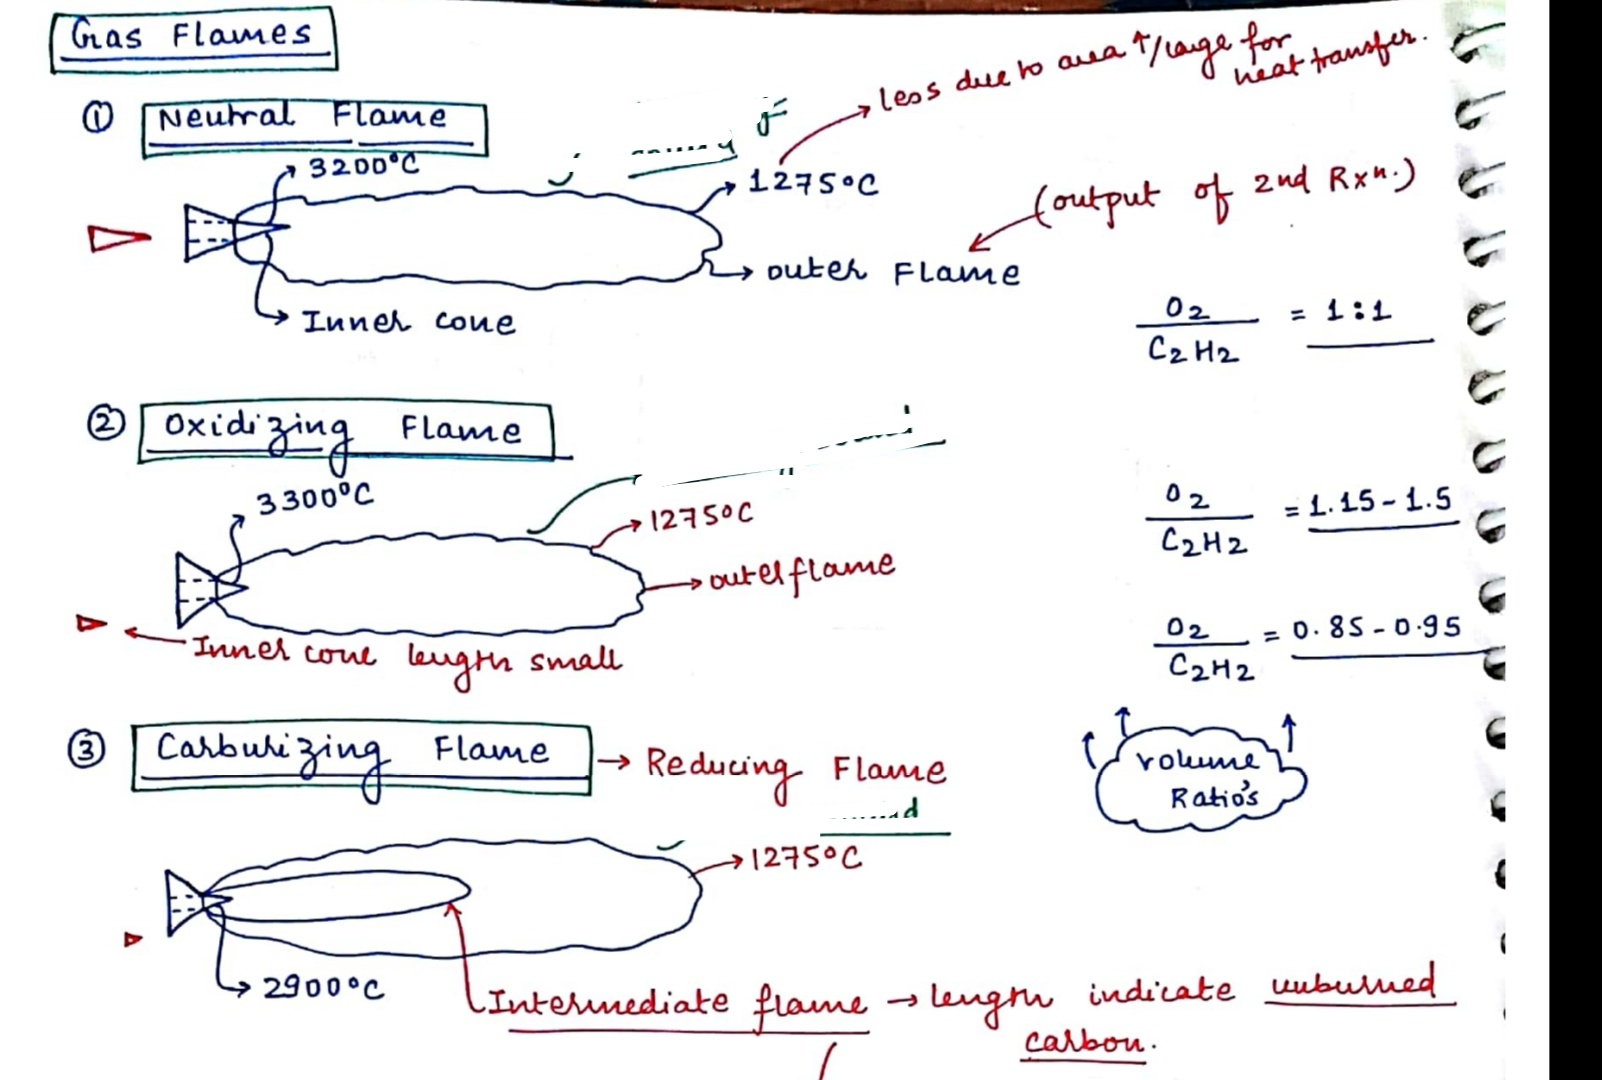 Gas Flames
① Neutral Flame
3200°C
1275°C
less due to area ↑/large for
heat transfer.
(output of 2nd Rxn.)
outer Flame
Inner cone
O2 / C2H2 = 1:1
② Oxidizing Flame
3300°C
1275°C
outer flame
Inner cone length small
O2 / C2H2 = 1.15 - 1.5
O2 / C2H2 = 0.85 - 0.95
volume
Ratio's
③ Carburizing Flame → Reducing Flame
1275°C
2900°C
Intermediate flame → length indicate unburned
carbon.